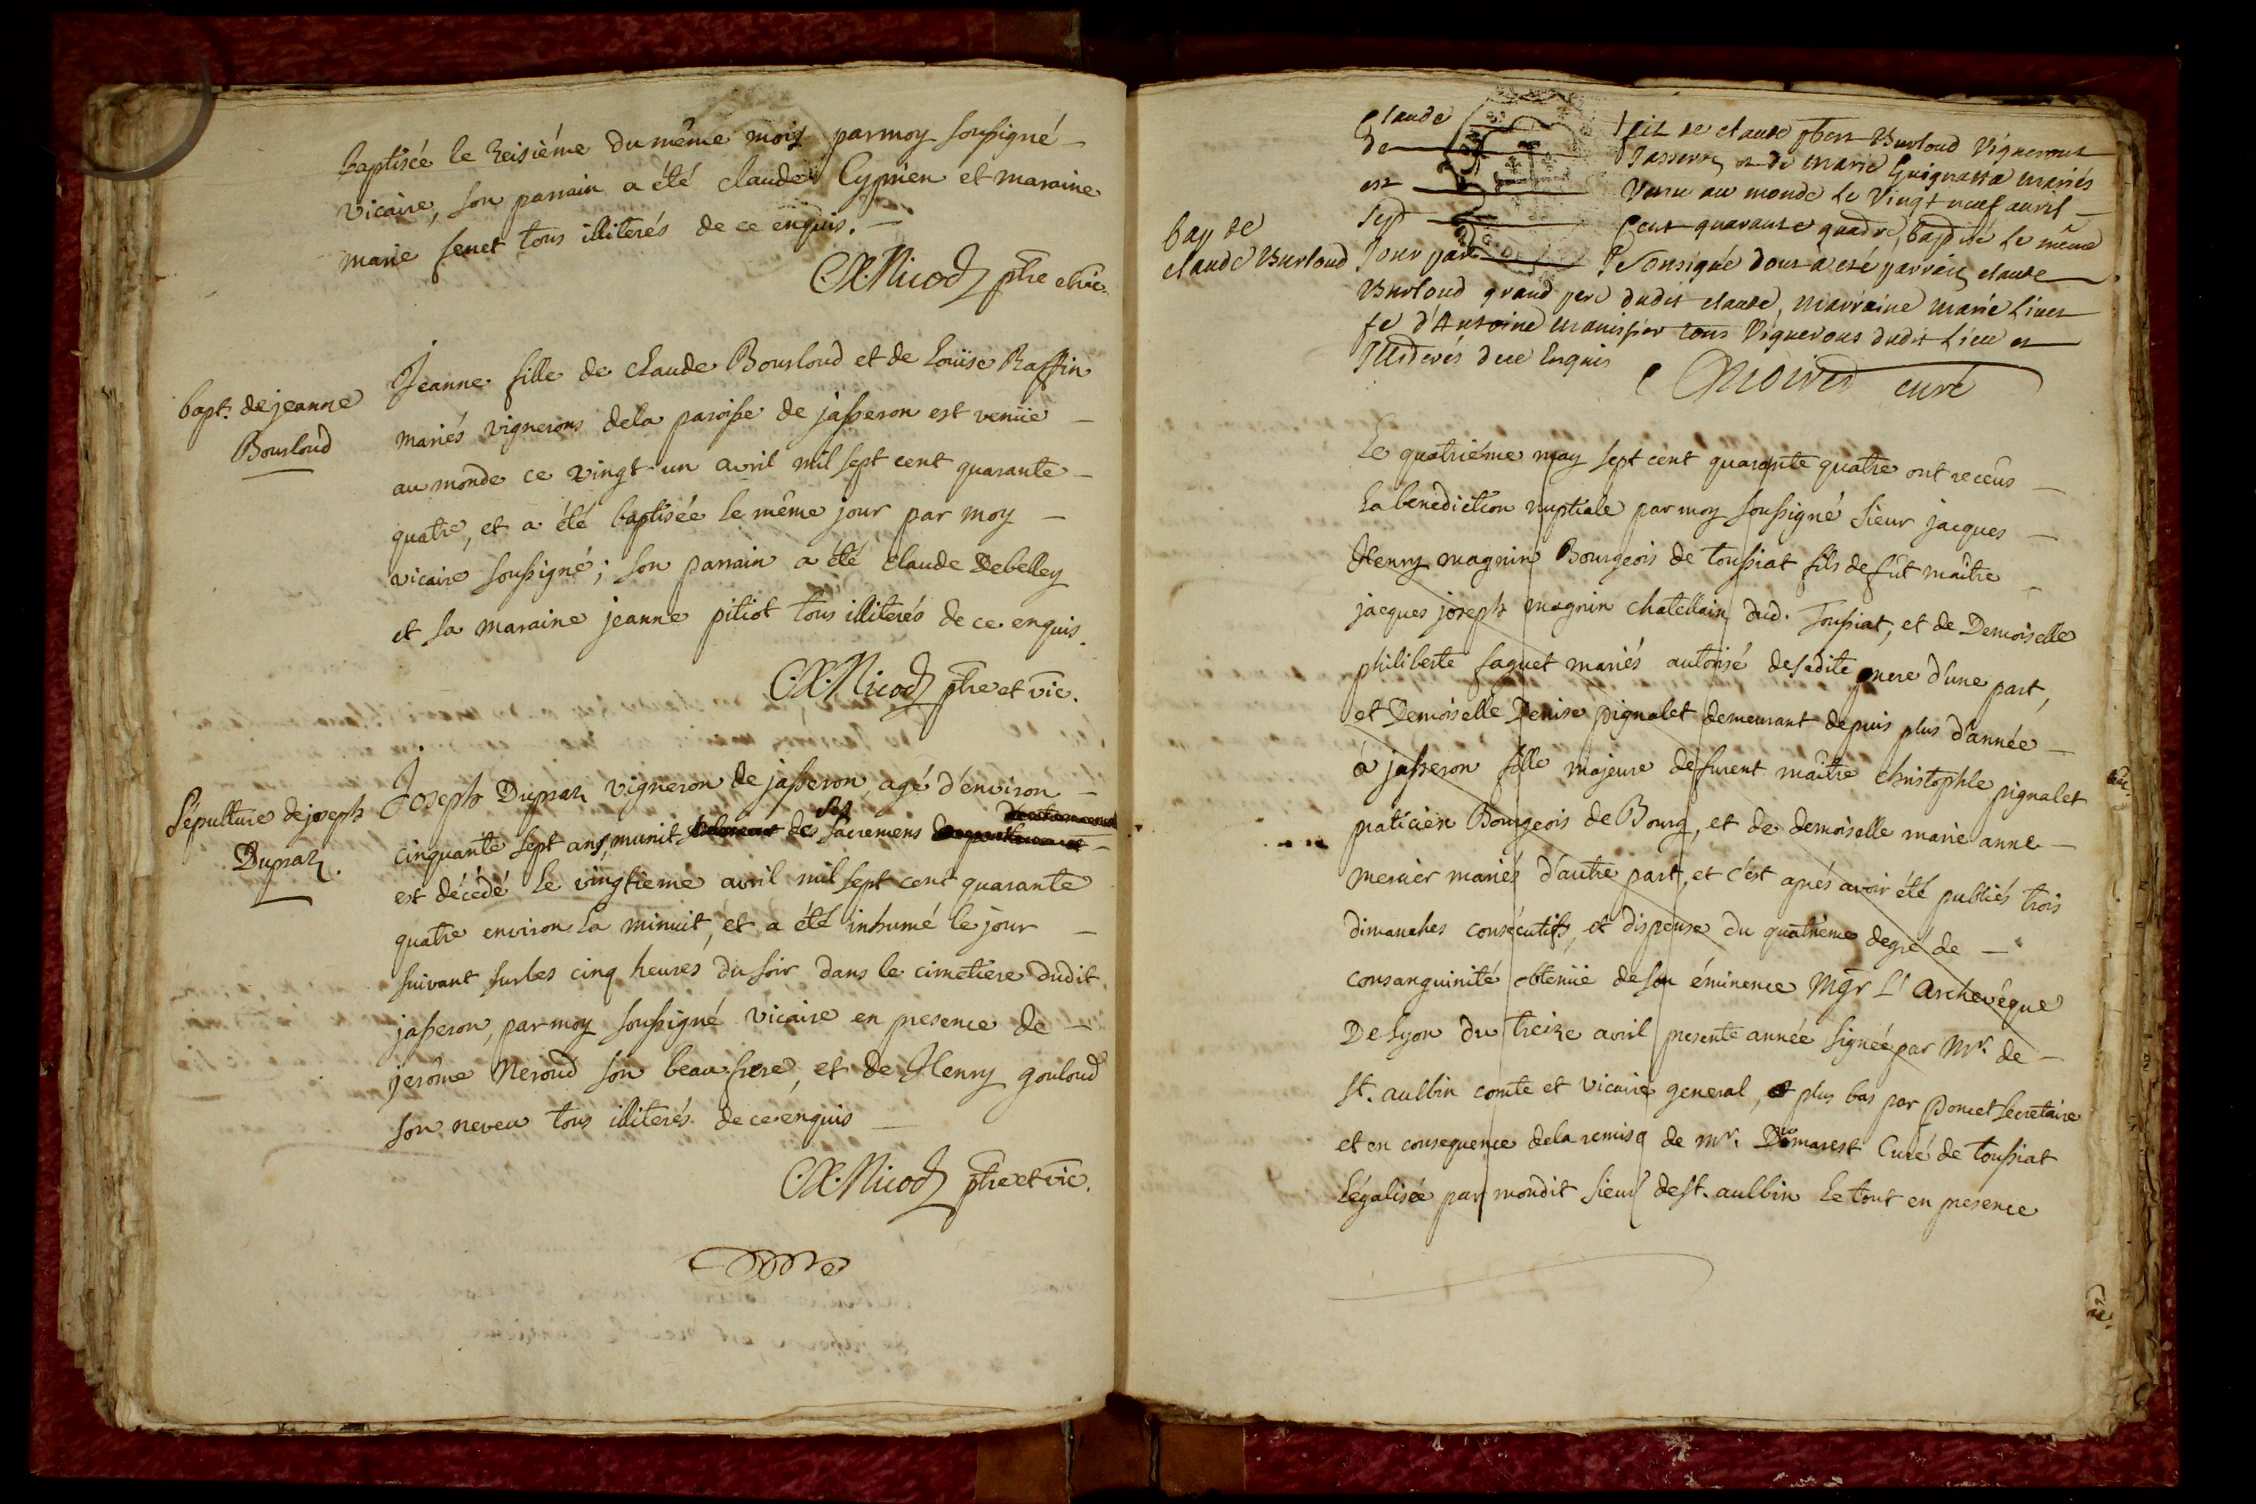 baptisée le treisiéme du même mois par moy soussigné
vicaire, son parrain a été claude Cyprien et maraine
marie fenet tous illiterés de ce enquis.
C.X. Nicod ptre et vic.
bapt. de jeanne
Bourloud
Jeanne fille de claude Bourloud et de Loüise Raffin
mariés vignerons dela paroisse de jasseron est venüe
au monde ce vingt-un avril mil sept cent quarante
quatre, et a été baptisée le même jour par moy
vicaire soussigné; son parrain a été claude Debelley
et sa maraine jeanne pitiot tous illiterés de ce enquis.
C.X. Nicod ptre et vic.
Sépulture de joseph
Dupraz.
Joseph Dupraz vigneron de jasseron, agé d'environ
cinquante sept ans, munit des sacremens
est décédé le vingtieme avril mil sept cent quarante
quatre environ la minuit, et a été inhumé le jour
suivant sur les cinq heures du soir dans le cimetiere dudit
jasseron, par moy soussigné vicaire en presence de
jerôme Neroud son beau frere, et de Henry gouloud
son neveu tous illiterés de ce enquis
C.X. Nicod ptre et vic.
bap de
claude Burloud
Claude fils de claude Burloud Vigneron
de Jasseron et de marie Guignatta mariés
est venu au monde le Vingt neuf avril
sept cent quarante quatre, baptisé le même
Jour par Je Sousigné dont a eté parrain claude
Burloud grand pere dudit claude, marraine marie
fe d'Antoine tous Vignerons dudit Lieu et
Illiterés de ce Enquis
curé
Le quatriéme may sept cent quarante quatre ont receus
la benediction nuptiale par moy soussigné sieur jacques
Henry magnin Bourgeois de toussiat fils de fût maître
jacques joseph magnin chatellain dud. Toussiat, et de Demoiselle
philiberte faguet mariés autorisé de sadite mere d'une part,
et Demoiselle Denise pignalet demeurant depuis plus d'année
à jasseron fille majeure de furent maître christophle pignalet
praticien Bourgeois de Bourg, et de demoiselle marie anne
mercier mariés d'autre part, et c'est aprés avoir été publiés trois
dimanches consécutifs, et dispense du quatriéme degré de
consanguinité obtenüe de son éminence Mgr L'Archevêque
De Lyon du treize avril presente année signée par Mr. de
st. aulbin comte et vicaire general, et plus bas par poncet secretaire
et en consequence dela remise de Mr. Domarest Curé de toussiat
légalisée par mondit sieur de st. aulbin le tout en presence